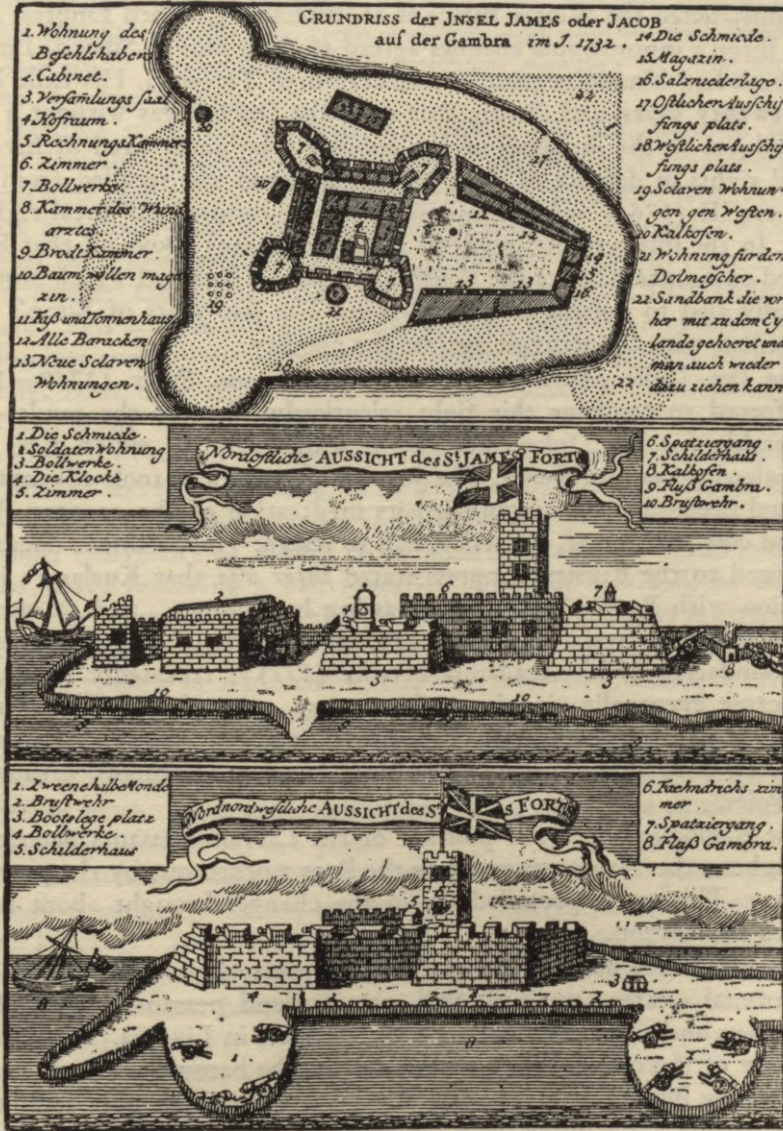 GRUNDRISS der JNSEL JAMES oder JACOB
auf der Gambra im J. 1732.
1. Wohnung des
Befehlshabers
2. Cabinet.
3. Versamlungs saal
4. Hofraum.
5. Rechnungs Kammer
6. Zimmer.
7. Bollwerke.
8. Kammer des Wund
arztes
9. Brodt Kammer.
10. Baum wollen maga
zin.
11. Faß und Tonnenhaus
12. Alle Baracken
13. Neue Sclaven
Wohnungen.
14. Die Schmiede.
15. Magazin.
16. Salzniederlage.
17. Ostlicher Ausschif
fungs plats.
18. Westlicher Ausschif
fungs plats.
19. Sclaven Wohnun
gen gen Westen.
20 Kalkofen.
21 Wohnung fur den
Dolmetscher.
22. Sandbank die vor
her mit zu dem Ey
lande gehoeret und
man auch wieder
dazu ziehen kann
22
20
17
7
7
10
12
12
14
15
16
13
13
7
7
19
21
18
22
1. Die Schmiede.
2 Soldaten Wohnung
3. Bollwerke.
4. Die Klocke
5. Zimmer.
Nordostliche AUSSICHT des St. JAMES FORTS
6. Spatziergang.
7. Schilderhaus.
8. Kalkofen.
9. Fluß Gambra.
10. Brustwehr.
1
2
4
6
7
3
3
8
10
10
1. Zweene halbe Monde
2. Brustwehr
3. Bootslege platz
4. Bollwerke.
5. Schilderhaus
Nordnordwestliche AUSSICHT des St. S FORTS
6. Faehndrichs zim
mer.
7. Spatziergang.
8. Fluß Gambra.
7
5
6
4
4
3
8
2
2
2
8
1
1